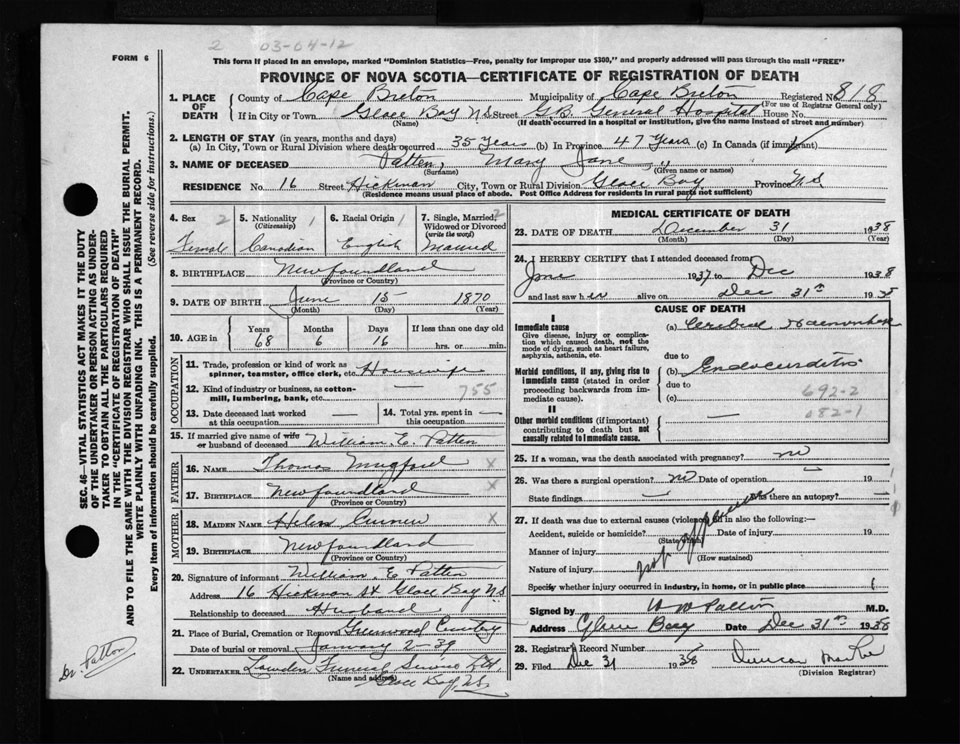 2 03-04-12
FORM 6
This form if placed in an envelope, marked "Dominion Statistics—Free, penalty for improper use $300," and properly addressed will pass through the mail "FREE"
PROVINCE OF NOVA SCOTIA—CERTIFICATE OF REGISTRATION OF DEATH
1. PLACE OF DEATH
County of Cape Breton Municipality of Cape Breton Registered No. 818
(For use of Registrar General only)
If in City or Town Glace Bay N.S. Street G.B. General Hospital House No.
(Name) (If death occurred in a hospital or institution, give the name instead of street and number)
2. LENGTH OF STAY (in years, months and days)
(a) In City, Town or Rural Division where death occurred 35 Years (b) In Province 47 Years (c) In Canada (if immigrant)
3. NAME OF DECEASED Patten, Mary Jane
(Surname) (Given name or names)
RESIDENCE No. 16 Street Hickman City, Town or Rural Division Glace Bay Province N.S
(Residence means usual place of abode. Post Office Address for residents in rural parts not sufficient)
4. Sex 2
Female
5. Nationality 1
(Citizenship)
Canadian
6. Racial Origin 1
English
7. Single, Married, 2
Widowed or Divorced
(write the word)
Married
8. BIRTHPLACE Newfoundland
(Province or Country)
9. DATE OF BIRTH June 15 1870
(Month) (Day) (Year)
10. AGE in
Years Months Days If less than one day old
68 6 16 hrs. or min.
OCCUPATION
11. Trade, profession or kind of work as
spinner, teamster, office clerk, etc. Housewife
12. Kind of industry or business, as cotton-
mill, lumbering, bank, etc. 755
13. Date deceased last worked
at this occupation —
14. Total yrs. spent in
this occupation —
15. If married give name of wife
or husband of deceased William E. Patten
FATHER
16. NAME Thomas Mugford X
17. BIRTHPLACE Newfoundland X
(Province or Country)
MOTHER
18. MAIDEN NAME Helen X
19. BIRTHPLACE Newfoundland
(Province or Country)
20. Signature of informant William E. Patten
Address 16 Hickman St Glace Bay N.S
Relationship to deceased Husband
21. Place of Burial, Cremation or Removal Greenwood Cemetery
Date of burial or removal January 2-39
22. UNDERTAKER Funeral Service Ltd
(Name and address)
Glace Bay N.S.
MEDICAL CERTIFICATE OF DEATH
23. DATE OF DEATH December 31 1938
(Month) (Day) (Year)
24. I HEREBY CERTIFY that I attended deceased from
1937 to Dec 1938
and last saw her alive on Dec 31st 19
CAUSE OF DEATH
I
Immediate cause
Give disease, injury or complica-
tion which caused death, not the
mode of dying, such as heart failure,
asphyxia, asthenia, etc.
(a) Cerebral Haemorrhage
due to
Morbid conditions, if any, giving rise to
immediate cause (stated in order
proceeding backwards from im-
mediate cause).
(b) Endocarditis
due to
(c) 692-2
082-1
II
Other morbid conditions (if important)
contributing to death but not
causally related to immediate cause.
25. If a woman, was the death associated with pregnancy? no
26. Was there a surgical operation? no Date of operation 19
State findings — Was there an autopsy?
27. If death was due to external causes (violence) fill in also the following:—
Accident, suicide or homicide? Date of injury 19
(State which)
Manner of injury
(How sustained)
Nature of injury
Specify whether injury occurred in industry, in home, or in public place
Signed by W W Patton M.D.
Address Glace Bay Date Dec 31st 1938
28. Registrar's Record Number
29. Filed Dec 31 1938 Duncan
(Division Registrar)
SEC. 46—VITAL STATISTICS ACT MAKES IT THE DUTY
OF THE UNDERTAKER OR PERSON ACTING AS UNDER-
TAKER TO OBTAIN ALL THE PARTICULARS REQUIRED
IN THE "CERTIFICATE OF REGISTRATION OF DEATH"
AND TO FILE THE SAME WITH THE DIVISION REGISTRAR WHO SHALL ISSUE THE BURIAL PERMIT.
WRITE PLAINLY WITH UNFADING INK. THIS IS A PERMANENT RECORD.
Every item of information should be carefully supplied. (See reverse side for instructions.)
Dr. Patton